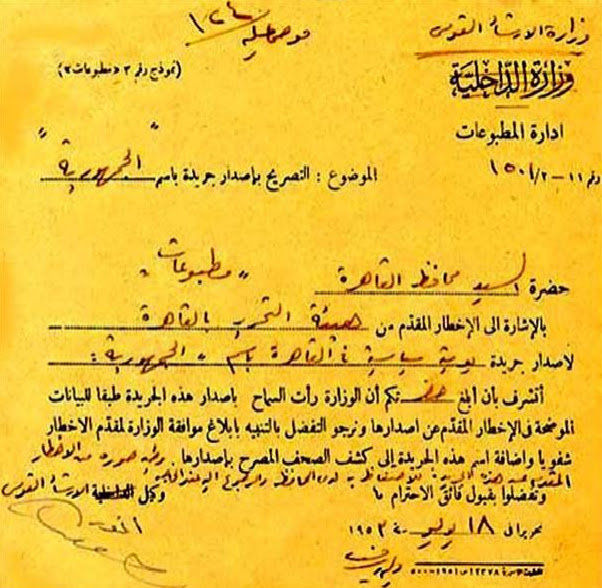 ١٢٤
وزارة الارشاد القومى
وزارة الداخلية
(نموذج رقم ٣ «مطبوعات»)
ادارة المطبوعات
رقم ١١ - ١٥٠١/٢
الموضوع : التصريح بإصدار جريدة باسم "الجمهورية"
حضرة السيد محافظ القاهرة "مطبوعات"
بالإشارة الى الإخطار المقدم من هيئة التحرير بالقاهرة
لاصدار جريدة يومية سياسية فى القاهرة باسم "الجمهورية"
أتشرف بأن أبلغ حضرتكم أن الوزارة رأت السماح باصدار هذه الجريدة طبقا للبيانات
الموضحة فى الإخطار المقدم عن اصدارها ونرجو التفضل بالتنبيه بابلاغ موافقة الوزارة لمقدم الاخطار
شفويا واضافة اسم هذه الجريدة إلى كشف الصحف المصرح بإصدارها وطيه صورة من الاخطار
المقدم عن هذه الجريدة للاحتفاظ به لدى المحافظة
وتفضلوا بقبول فائق الاحترام ما
وكيل الداخلية الارشاد القومى
تحريرا فى ١٨ يوليو سنة ١٩٥٣